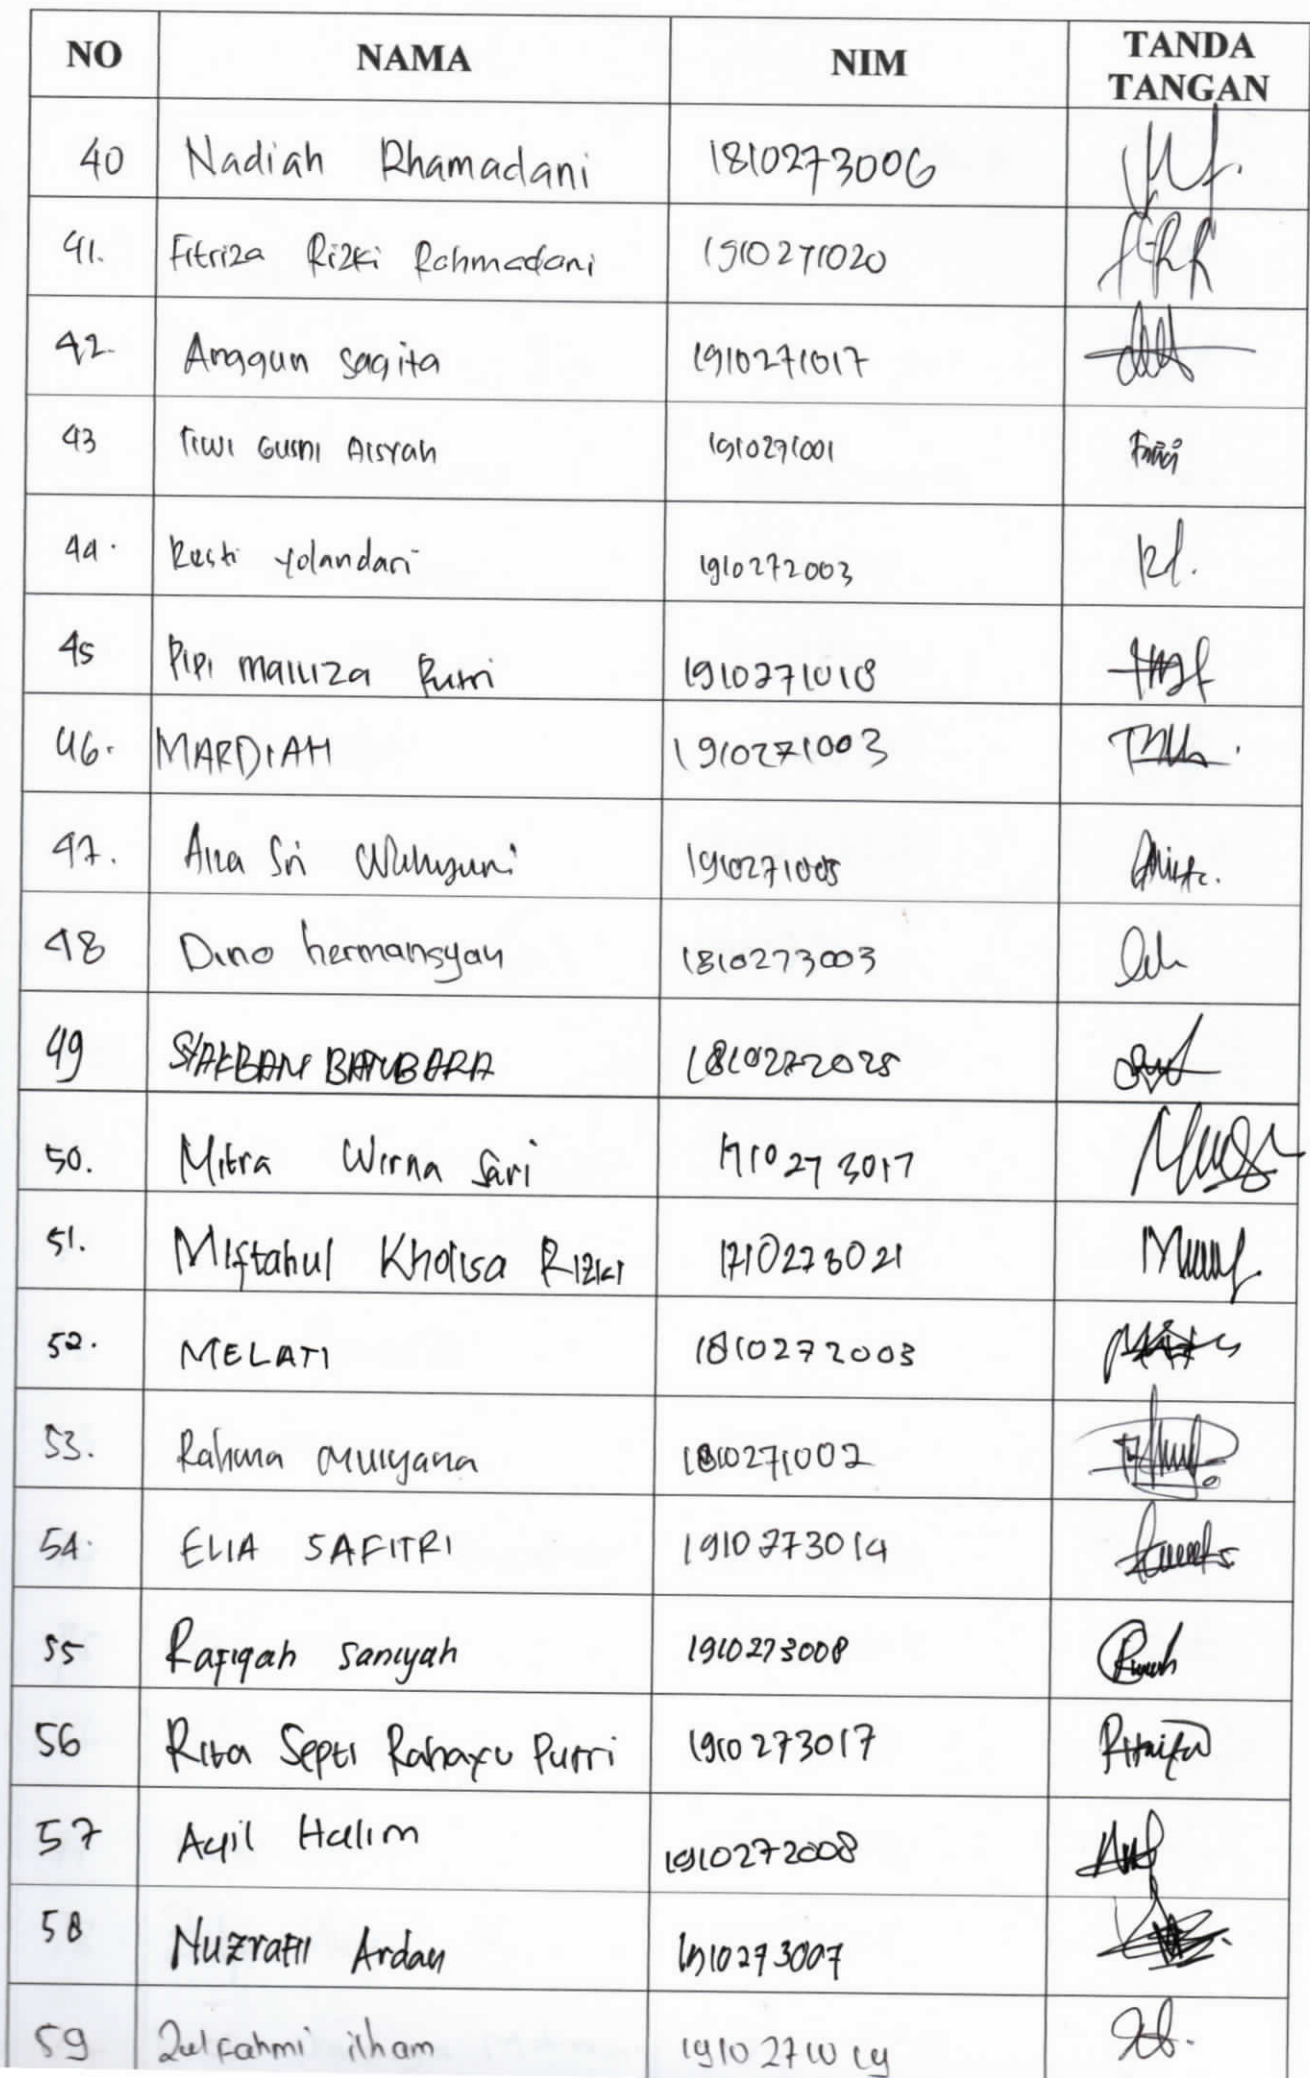 NO NAMA NIM TANDA TANGAN
40 Nadiah Rhamadani 1810273006
41. Fitriza Rizki Rahmadani 1910271020
42. Anggun sagita 1910271017
43 Tiwi Gusni Aisyah 1910271001
44. Resti Yolandari 1910272003
45 Pipi mailiza Putri 1910271018
46. MARDIAH 1910271003
47. Sri Wahyuni 1910271005
48 Dino hermansyah 1810273003
49 1810272025
50. Mitra Wirna Sari 1710273017
51. Miftahul Kholisa Rizki 1710273021
52. MELATI 1810272003
53. Rahma Muliyana 1810271002
54. ELIA SAFITRI 1910273014
55 Rafiqah Saniyah 1910273008
56 Rita Septi Rahayu Putri 1910273017
57 Aqil Halim 1910272008
58 Nuzratil Ardan 1910273007
59 Zulfahmi ilham 1910271019